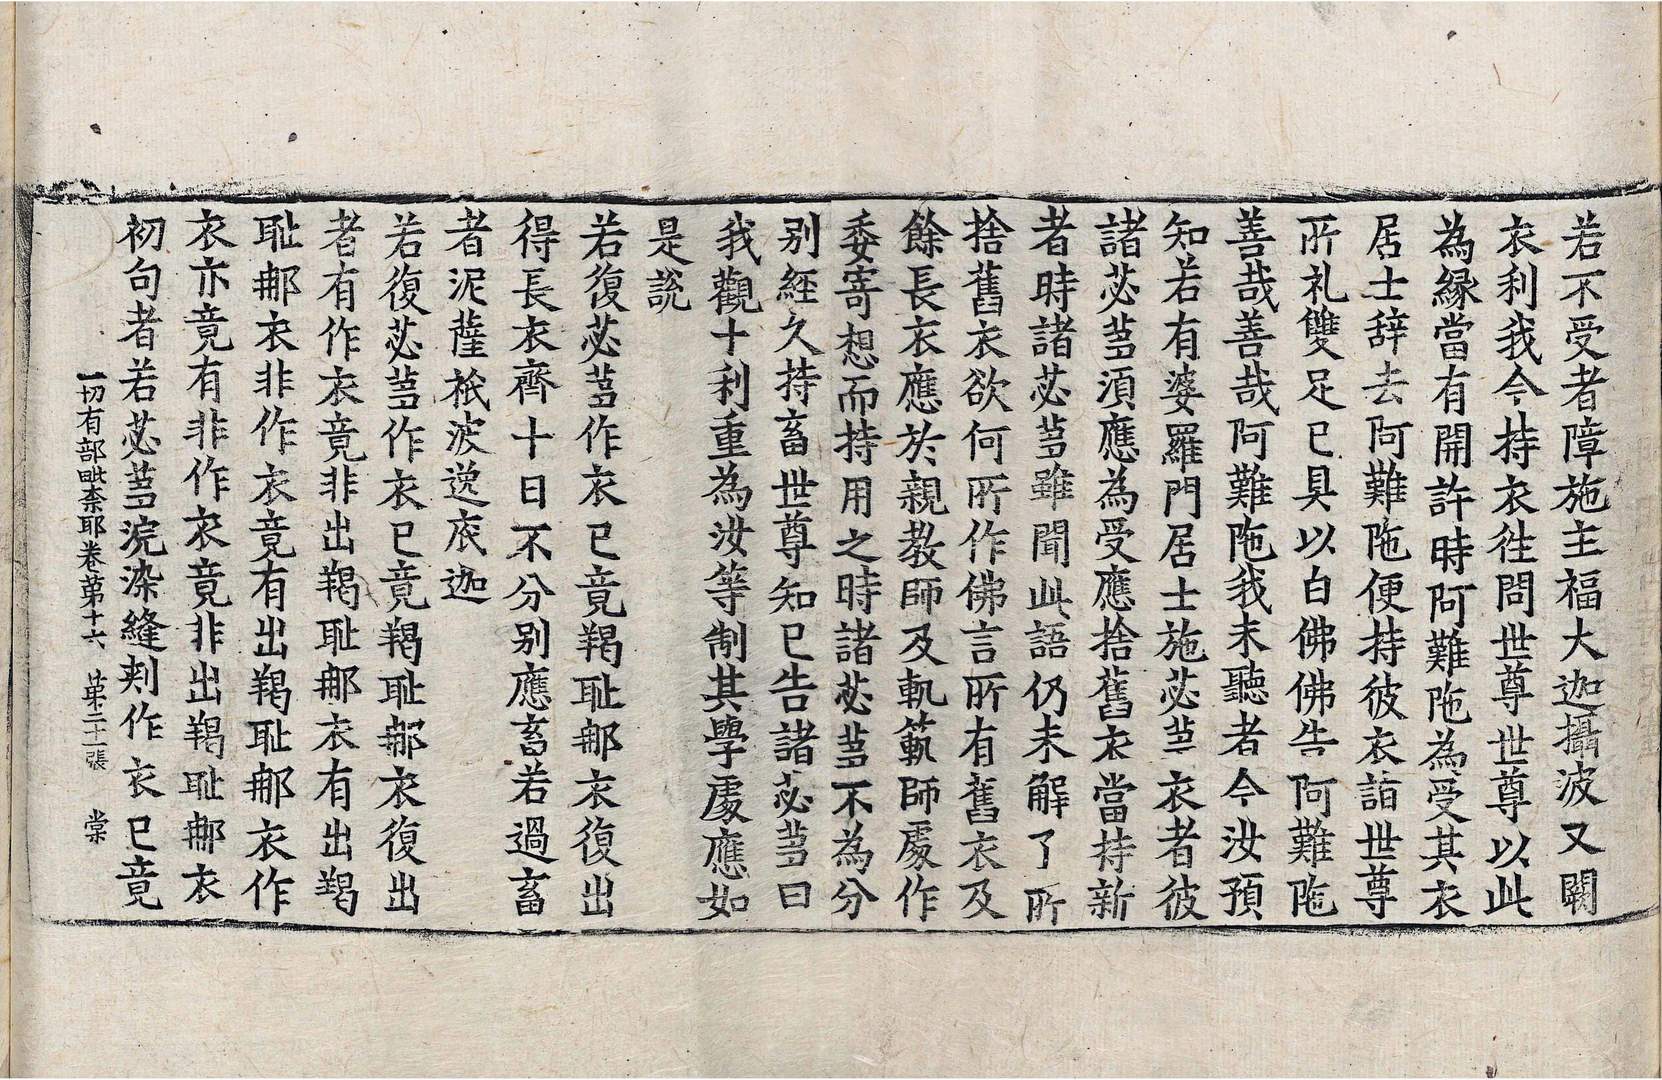 若不受者障施主福大迦攝波又闕
衣利我今持衣往問世尊世尊以此
為緣當有開許時阿難陁為受其衣
居士辞去阿難陁便持彼衣詣世尊
所礼雙足已具以白佛佛告阿難陁
善哉善哉阿難陁我未聽者今汝預
知若有婆羅門居士施苾芻衣者彼
諸苾芻湏應為受應捨舊衣當持新
者時諸苾芻雖聞此語仍未解了所
捨舊衣欲何所作佛言所有舊衣及
餘長衣應於親教師及軌範師處作
委寄想而持用之時諸苾芻不為分
別經久持畜世尊知已告諸苾芻曰
我觀十利重為汝等制其學處應如
是說
若復苾芻作衣已竟羯耻那衣復出
得長衣齊十日不分別應畜若過畜
者泥薩祇波逸底迦
若復苾芻作衣已竟羯耻那衣復出
者有作衣竟非出羯耻那衣有出羯
耻那衣非作衣竟有出羯耻那衣作
衣亦竟有非作衣竟非出羯耻那衣
初句者若苾芻浣染縫刺作衣已竟
一切有部毗柰耶卷苐十六 苐二十一張 棠